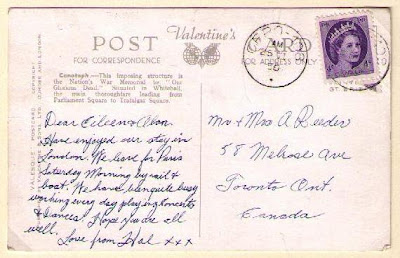 Valentine's
POST CARD
FOR CORRESPONDENCE
FOR ADDRESS ONLY
Cenotaph—This imposing structure is
the Nation's War Memorial to "Our
Glorious Dead." Situated in Whitehall,
the main thoroughfare leading from
Parliament Square to Trafalgar Square.
Dear Eileen & Alvon.
Have enjoyed our stay in
London. We leave for Paris
Saterday Morning by rail &
boat. We have been quite busy
working every day playing Concerts
& Dances. Hope you are all
well.
Love from Hal xxx
Mr & Mrs A Reeder
58 Melrose Ave
Toronto Ont.
Canada